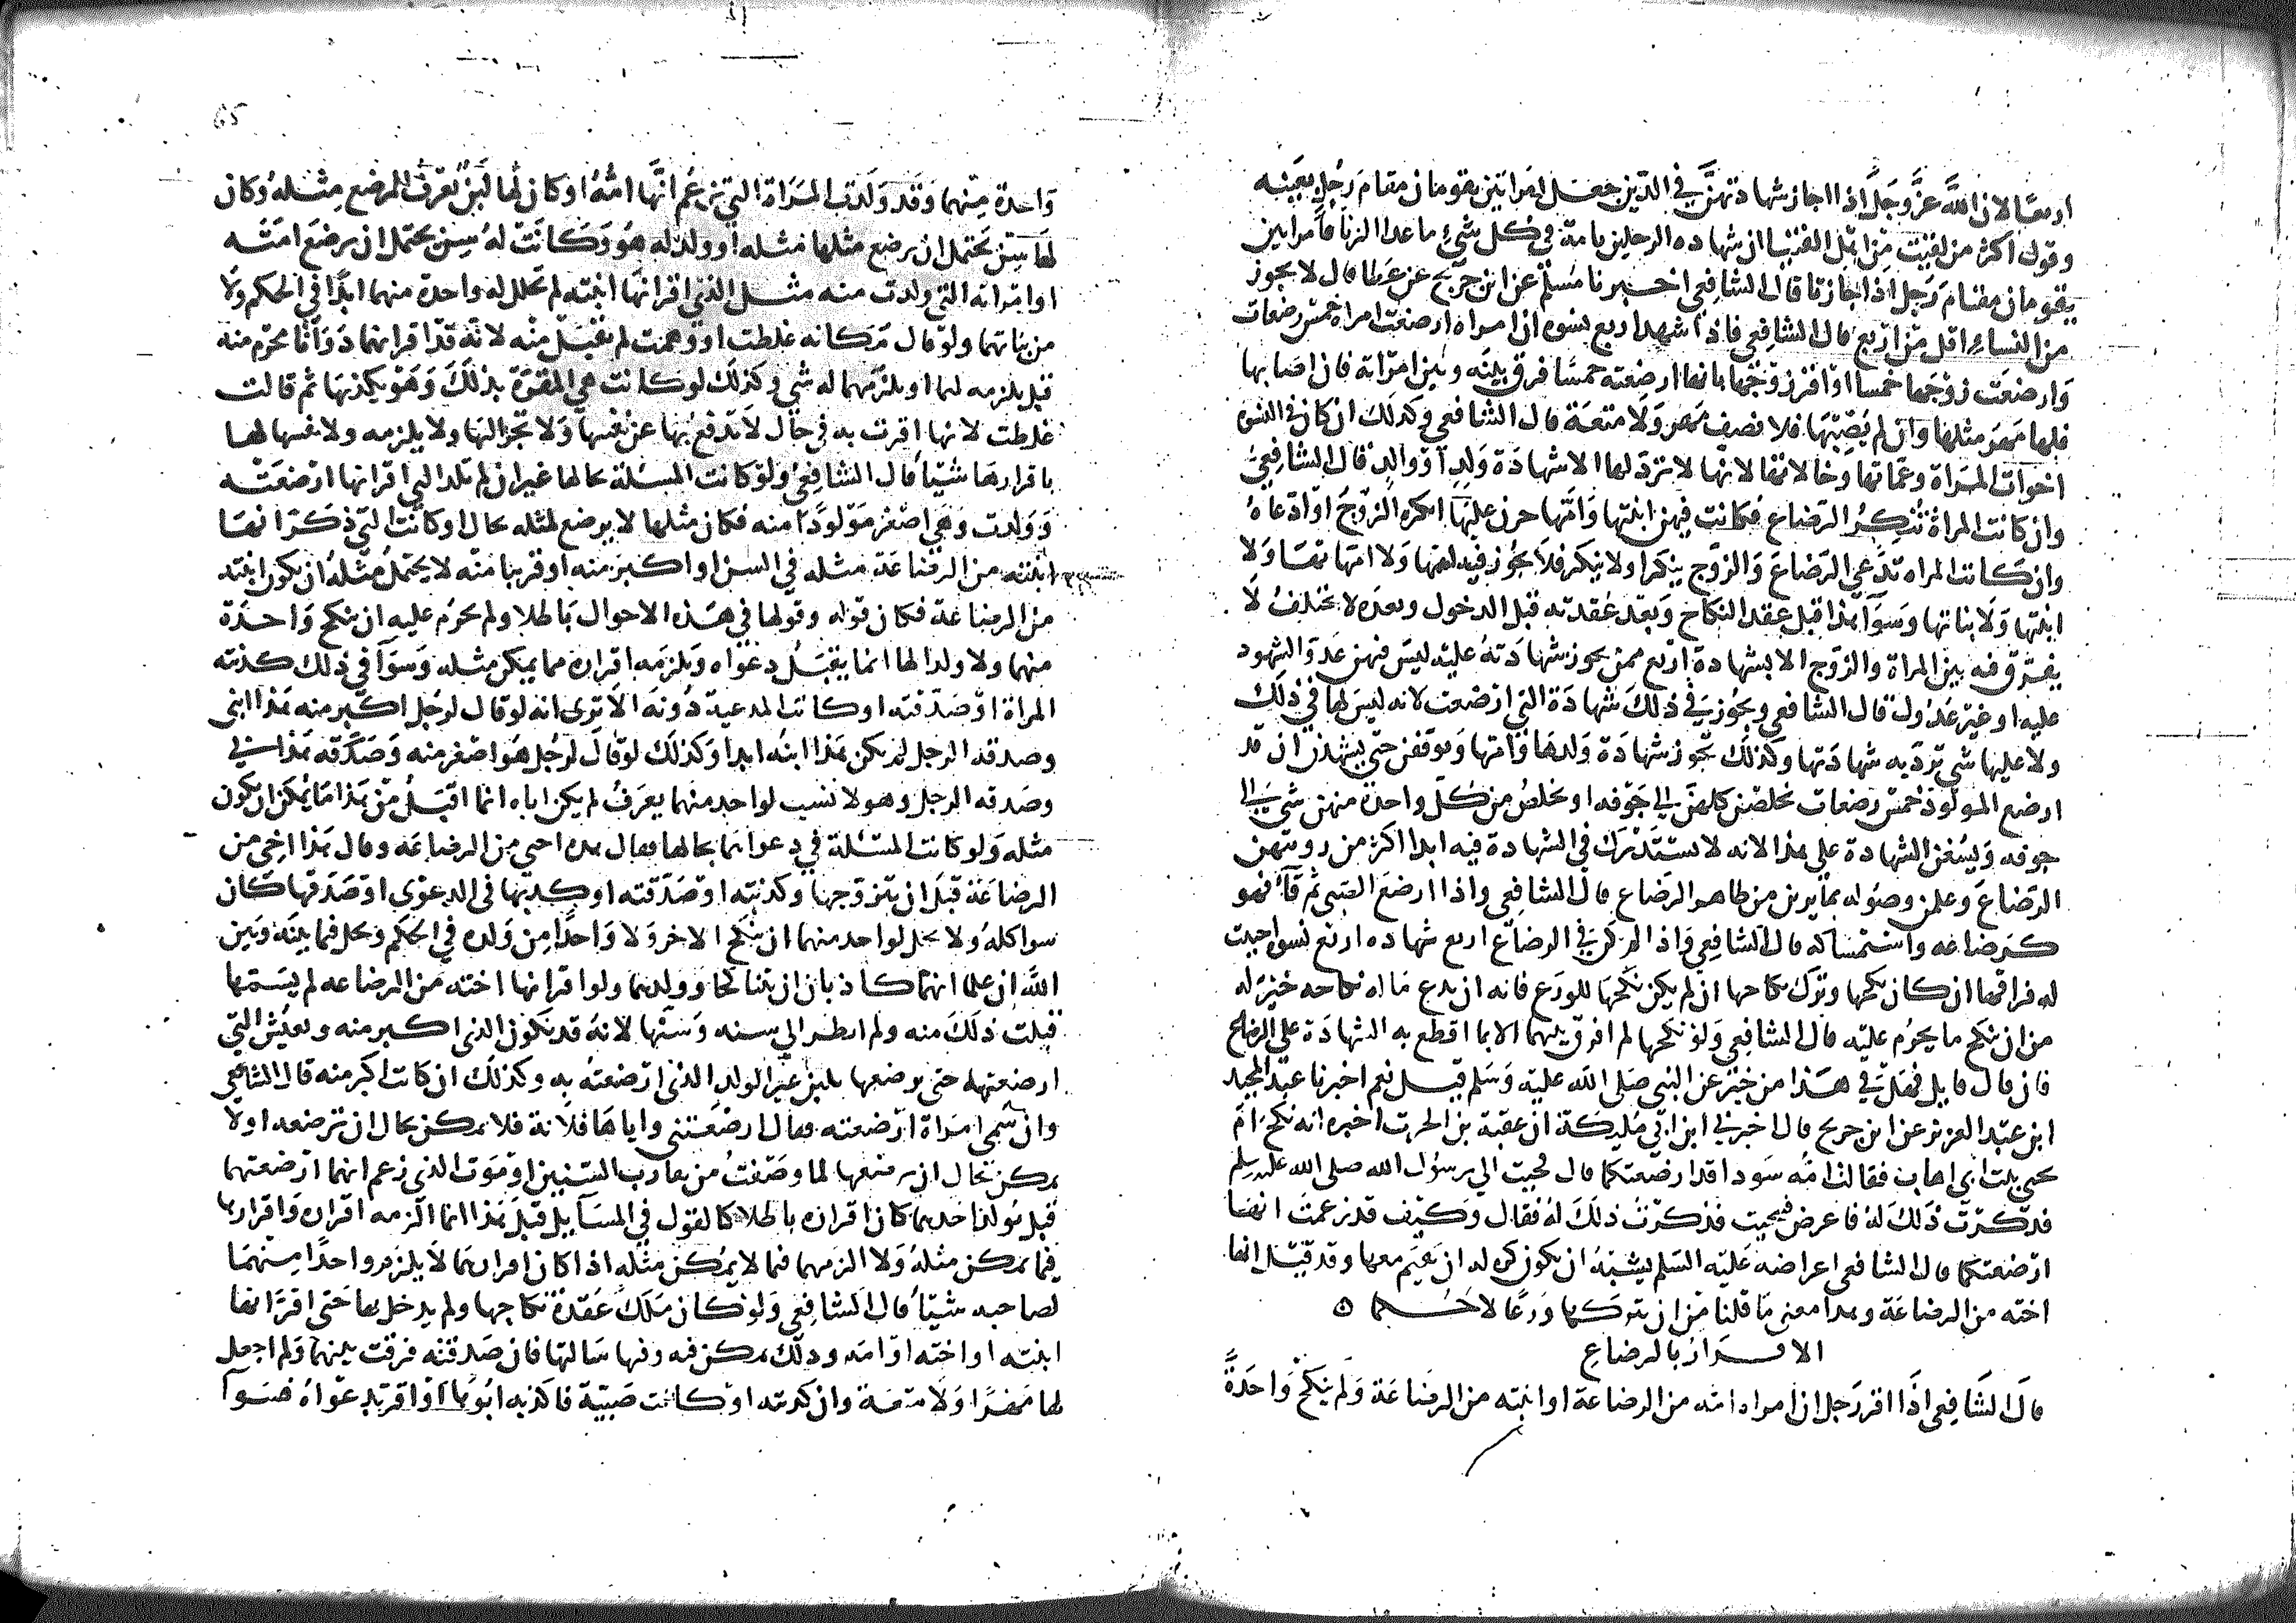 اربعًا لان الله عزَّ وَجَلَّ اذا اجاز شهادتهنَّ في الدَّين جعل امراتين يقومان مقام رَجُلٍ بعَينه
وقول اكثر من لقيت مِن اهل الفتيا ان شهاده الرجلين تامة في كل شيءٍ ما عدا الزنا فامراتين
يقومان مقام رَجل اذا اجازتا قال الشافعي اخبرنا مُسلم عن ابن جريج عن عطا قال لا يجوز
من النساءِ اقل من اربع قال الشافعي فاذا شهد اربع نسوه ان امراه ارضعت امراه خمس رضعات
وَارضعَت زوجها خمسا او اقر زوجها بانها ارضعته خمسًا فرق بينه وبين امراته فان اصابها
فلها مهر مثلها وان لم يصبها فلا نصف مهر ولا متعة قال الشافعي وكذلك ان كان في النسوه
اخوات المراة وعماتها وخالاتها لانها لا ترد لها الا شهادة ولدٍ او والدٍ قال الشافعي
وان كانت المراة تنكر الرضاع فكانت فيهن ابنتها وَامها جزن عليها انكره الزوج او ادعاهُ
وان كانت المراه تدعي الرضاعَ وَالزوج ينكر اولا ينكر فلا يجوز فيه امها وَلا امهاتها وَلا
ابنتها وَلا بناتها وسَوَا هذا قبل عقد النكاح وَبعد عُقدته قبل الدخول وبعده لا يختلفُ لَا
يفرق فيه بين المراة والزوج الا بشهادة اربع ممن يجوز شهادتهُ عليه ليس فيهن عَدو الشهود
عليه او غير عَدُول قال الشافعي ويجُوز في ذلكَ شهادَة التي ارضعت لانه ليسَ لها في ذلك
ولا عليها شي ترد به شهادتها وكذلك تجوز شهادة ولدها وامها ويوقفن حتى يشهدن ان قد
ارضع المولود خمس رضعات تخلصن كلهنَّ الى جَوفه او يخلصُ من كل واحدة منهن شي الى
جوفه وَيسُعهن الشهادة على هذا لانه لا يستدرَك في الشهادة فيه ابدا اكثر من رويتهن
الرَضاعَ وعلمن وصوله بما يرين من ظاهر الرَضاع قال الشافعي واذا ارضعَ الصبي ثم قآء فهو
كرضاعه واستمساكه قال الشافعي وَاذا لم يكن في الرضاع اربع شهاده اربع نسوه احببت
له فراقها ان كان نكحها وترَك نكاحها ان لم يكن نكحها للورَع فانه ان يدع مَا له نكاحه خيرٌ له
من ان ينكح ما يحرُم عليه قال الشافعي وَلو نكحها لم افرق بينهما الا بما اقطع به الشهادَة على الرضاع
فان قال قايل فهَل في هذا من خبر عن النبي صَلى الله عليه وَسَلم قيل نعم اخبرنا عبد المجيد
ابن عبد العزيز عن ابن جريج قال اخبرني ابن ابي مُليكة ان عقبة بن الحرث اخبره انه نكحَ امَ
يحيى بنت ابي اهاب فقالت امه سَودا قد ارضعتكما قال فجيت الى رسول الله صلى الله عليه وسلم
فذكرت ذلك لهُ فاعرض فجيت فذكرْت ذلكَ لهُ فقال وَكيف قد زعمت انها
ارضعتكما قال الشافعي اعراضه عَليه السَلم يشبهُ ان يكون كره له ان يقيم معها وقد قيل انها
اخته من الرضاعَة وهذا معنى مَا قلنا من ان يتركها وَرعًا لا حُكما ٥
الاقرارُ بالرضاعِ
قال الشَافعي اذا اقر رَجل ان امراه امه من الرضاعة او ابنته من الرضَاعَة وَلم ينكح وَاحدَةً
وَاحدة مِنهما وَقد وَلدت المرَاة التي يزعُم انَّها امُّهُ او كان لها لبنٌ يُعرفُ المرضع مِثلهُ وكان
لها سِن يحتمل ان يرضع مثلها مثله او ولد له هُو وَكانت لهُ سِن يحتمل ان يرضعَ امته
او امراته التي ولدت منه مثل الذي اقر انَّها ابنته لم تحلل له واحدة منهما ابدًا في الحكم وَلا
من بناتهما ولو قال مَكانه غلطت او وهمت لم يقبل منه لانه قد اقر انهما ذَوَاتا محرم منه
قبل يلزمه لهما او يلزمهما له شي وكذلك لو كانت هي المقرة بذلكَ وَهو يكذبها ثم قالت
غلطت لانها اقرت به في حال لا تدفع بها عن نفسها وَلا تجر اليها ولا يلزمه ولا نفسها لها
باقرارها شيًا قال الشافعي ولو كانت المسئلة بحالها غير ان لم تلد التي اقر انها ارضعَته
وَولدت وَهي اصغر مَولودًا منه فكان مثلها لا يرضع لمثله بحال او كانت التي ذكَرَ انها
ابنته من الرضاعَة مثله في السن او اكبرَ منه او قريبا منه لا يحتملُ مثلهُ ان يكون ابنته
من الرضاعَة فكان قوله وقولها في هذه الاحوال بَاطلا ولم يحرُم عليه ان ينكح وَاحدَة
منهما ولا ولدا لها انما يقبَلُ دعواه وَيلزمه اقراره مما يمكن مثله وَسَوَآ في ذلك كذبته
المراة او صَدقته او كانت المدعية دُونهَ الا ترى انه لو قال لرجل اكبر منه هَذا ابني
وصدقه الرجل لم يكن هَذا ابنهُ ابدا وَكذلَك لو قال لرَجل هُو اصغر منه وَصَدقه هَذا ابي
وصَدقه الرجل وهو لا نسب لواحد منهما يعرَفُ لم يكن اباه انما اقبَلُ من هذا مَا يُمكن ان يكون
مثله وَلو كانت المسئلة في دعواهما بحالها فقال هذه اختي من الرضاعَة وقال هَذا اخي من
الرضاعَة قبل ان يتزوجها وكذبته او صَدقته او كذبها في الدعوى او صَدقها كان
سوا كلهُ ولا يحل لواحد منهما ان ينكح الاخر وَلا وَاحدًا مِن وَلده في الحكم ويحل فيما بينه وَبين
اللهَ ان علما انهما كاذبان ان يتناكحا وَولدهما ولو اقر انها اخته مَن الرضاعه لم يسَمها
قبلتُ ذلَك منه ولم انظر الى سنه وَسنها لانهُ قد يكون الذي اكبر منه وتعيش التي
ارضعتهما حتى يرضعها بلبن غير الولد الذي ارضعتهُ به وكذلك ان كانت اكبر منه قال الشافعي
وان سَمى امَراة ارضعته فقال ارضعَتني واياهَا فلانة فلا يمكن بحال ان ترضعه او لا
يمكن بحال ان ترضعها لما وصَفتُ من تقارب السنين او مَوت الذي زعم انهما ارضعتهما
قبل مُولد احدهما كان اقراره باطلا كالقول في المسَايل قبلَ هَذا انما الزمه اقراره وَاقرارها
فيما يمكن مثلهُ وَلا الزمهما فيما لا يمكن مثله اذا كان اقرارهما لا يلزم واحدًا مِنهمَا
لصاحبه شيًا قال الشافعي وَلو كان مَلكَ عُقدَة نكاحها ولم يدخل بها حَتى اقر انها
ابنته او اخته او امه وذلك يمكن فيه وفيها سَالتها فان صَدقته فرقت بينهما وَلم اجعل
لها مَهرًا وَلا متعَة وان كذبته او كانت صَبيّة فاكذبه ابُوها او اقر بدعواهُ فسَوآ